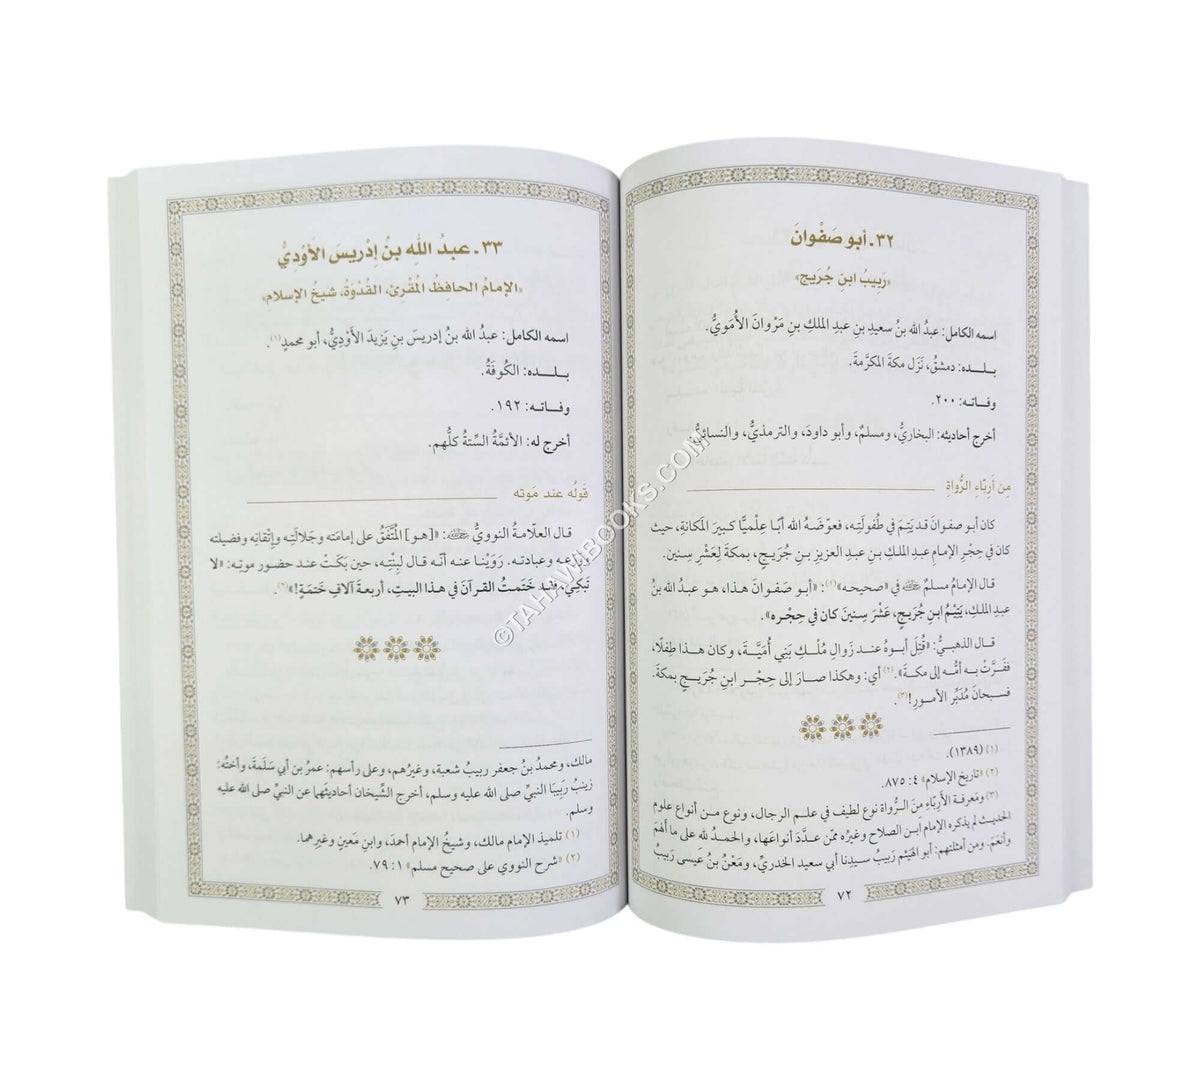 ٣٢ـ أبو صَفْوانَ
«رَبِيبُ ابنِ جُرَيج»
اسمه الكامل: عبدُ الله بنُ سعيدِ بنِ عبدِ الملكِ بنِ مَرْوانَ الأُمَويُّ.
بـلـــده: دمشقُ، نَزَل مكةَ المكرَّمةَ.
وفـاتـه: ٢٠٠.
أخرج أحاديثه: البخاريُّ، ومسلمٌ، وأبو داودَ، والترمذيُّ، والنسائيُّ.
مِن أَرِبّاءِ الرُّواةِ
كان أبو صفوانَ قد يَتِمَ في طُفولَتِه، فعوَّضَهُ الله أبًا عِلْميًّا كبيرَ المَكانةِ، حيث
كان في حِجْرِ الإمامِ عبدِ الملكِ بنِ عبدِ العزيزِ بنِ جُرَيجٍ، بمكةَ لِعَشْرِ سِنين.
قال الإمامُ مسلمٌ ﵀ في «صحيحه»(١): «أبو صَفوانَ هذا، هو عبدُ الله بنُ
عبدِ الملكِ، يَتيمُ ابنِ جُرَيجٍ، عَشْرَ سِنينَ كان في حِجْرِه».
قال الذهبيُّ: «قُتِلَ أبوهُ عند زَوالِ مُلْكِ بَنِي أُمَيَّةَ، وكان هذا طِفلًا،
ففَرَّتْ به أمُّه إلى مكةَ»(٢). أي: وهكذا صارَ إلى حِجْرِ ابنِ جُرَيجٍ بمكةَ.
فسبحانَ مُدَبِّرِ الأمورِ!(٣).
(١) (١٣٨٩).
(٢) «تاريخ الإسلام» ٤: ٨٧٥.
(٣) ومَعرِفةُ الأَرِبّاءِ مِنَ الرُّواةِ نوع لطيف في علم الرجال، ونوع من أنواع علوم
الحديث لم يذكره الإمام ابن الصلاح وغيرُه ممّن عدَّدَ أنواعَها، والحمدُ لله على ما ألهَمَ
وأنعَمَ. ومن أمثلتهم: أبو الهَيْثمِ رَبيبُ سيدِنا أبي سعيد الخدريِّ، ومَعْنُ بنُ عيسى رَبيبُ
٧٢
٣٣ـ عبدُ اللهِ بنُ إدْريسَ الأَوْديُّ
«الإمامُ الحافِظُ المُقْرِئ، القُدْوَةُ، شيخُ الإسلامِ»
اسمه الكامل: عبدُ الله بنُ إدريسَ بنِ يَزيدَ الأَوْديُّ، أبو محمدٍ(١).
بـلـــده: الكُوفَةُ.
وفـاتـه: ١٩٢.
أخرج له: الأئمَّةُ السِّتةُ كلُّهم.
قَولُه عند مَوتِه
قال العلّامةُ النوويُّ ﵀: «[هو] المُتَّفَقُ على إمامَتِه وجَلالَتِه وإتْقانِه وفضيلته
وعبادته. رَوَيْنا عنه أنّه قال لبِنْتِه، حين بَكَتْ عند حضورِ موتِه: «لا
تَبكِي، قد خَتَمتُ القرآنَ في هذا البيتِ، أربعةَ آلافِ خَتمَةٍ!»(٢).
مالك، ومحمدُ بنُ جعفر ربيبُ شعبة، وغيرُهم، وعلى رأسهم: عمرُ بن أبي سَلَمةَ، وأختُه:
زينبُ رَبِيبا النبيِّ صلى الله عليه وسلم، أخرج الشَّيخان أحاديثَهما عن النبي صلى الله عليه
وسلم.
(١) تلميذ الإمام مالك، وشيخُ الإمام أحمدَ، وابنِ مَعينٍ وغيرِهما.
(٢) «شرح النووي على صحيح مسلم» ١: ٧٩.
٧٣
©TAHAWIBOOKS.COM